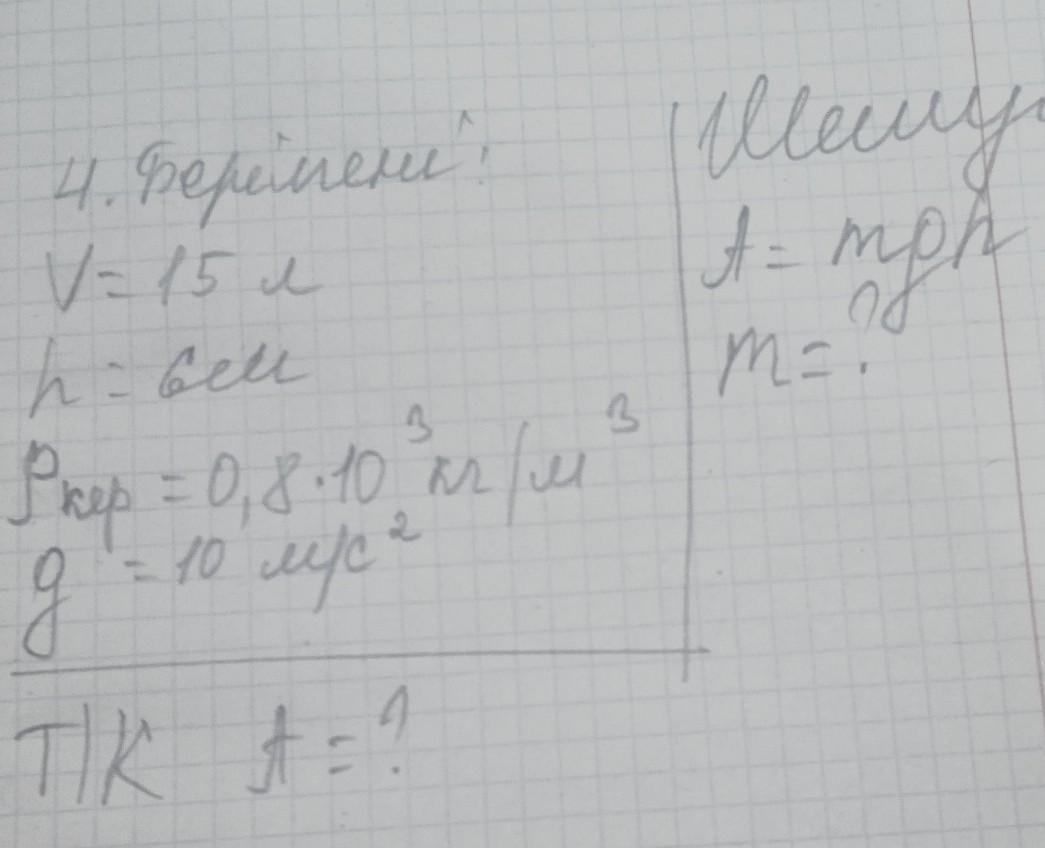 4. Берілгені:
V = 15 л
h = 6 см
ρкер = 0,8·10³ кг/м³
g = 10 м/с²
Т/К A = ?
Шешу
A = mgh
m = ?